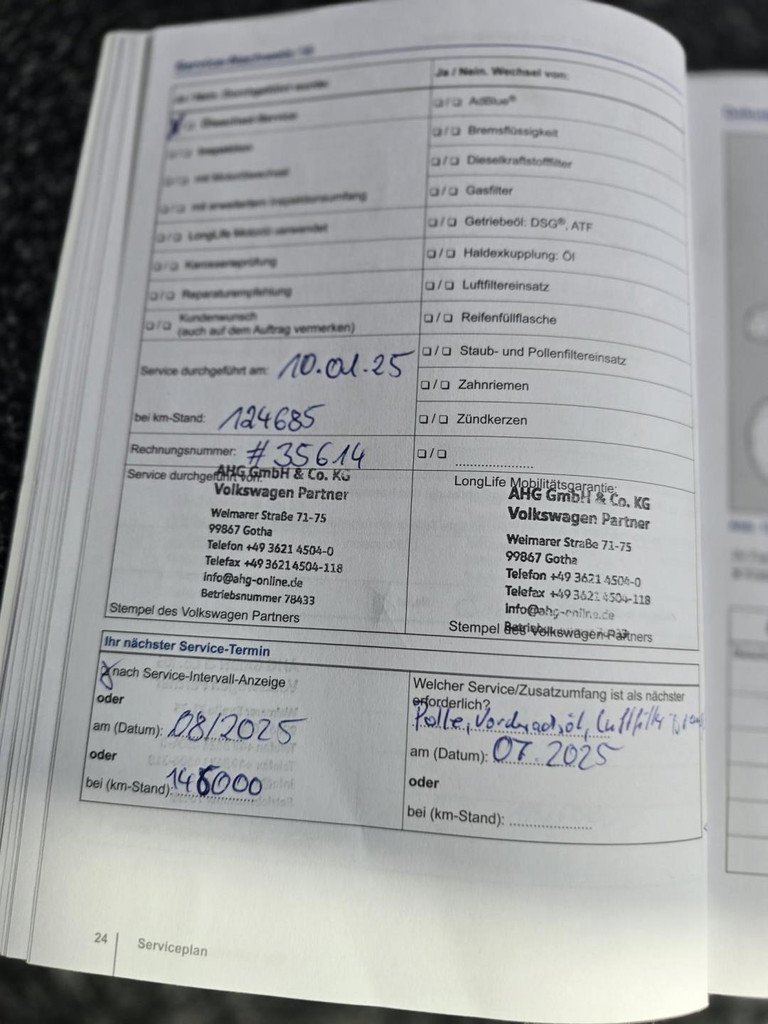 Service-Nachweis
Ja / Nein. Durchgeführt wurde:
☒ / ☐ Ölwechsel-Service
☐ / ☐ Inspektion
☐ / ☐ mit Motorölwechsel
☐ / ☐ mit erweitertem Inspektionsumfang
☐ / ☐ LongLife Motoröl verwendet
☐ / ☐ Karosserieprüfung
☐ / ☐ Reparaturempfehlung
☐ / ☐ Kundenwunsch
(auch auf dem Auftrag vermerken)
Service durchgeführt am: 10.01.25
bei km-Stand: 124685
Rechnungsnummer: #35614
Service durchgeführt von:
AHG GmbH & Co. KG
Volkswagen Partner
Weimarer Straße 71-75
99867 Gotha
Telefon +49 3621 4504-0
Telefax +49 3621 4504-118
info@ahg-online.de
Betriebsnummer 78433
Stempel des Volkswagen Partners
Ja / Nein. Wechsel von:
☐ / ☐ AdBlue®
☐ / ☐ Bremsflüssigkeit
☐ / ☐ Dieselkraftstofffilter
☐ / ☐ Gasfilter
☐ / ☐ Getriebeöl: DSG®, ATF
☐ / ☐ Haldexkupplung: Öl
☐ / ☐ Luftfiltereinsatz
☐ / ☐ Reifenfüllflasche
☐ / ☐ Staub- und Pollenfiltereinsatz
☐ / ☐ Zahnriemen
☐ / ☐ Zündkerzen
☐ / ☐ ....................
LongLife Mobilitätsgarantie:
AHG GmbH & Co. KG
Volkswagen Partner
Weimarer Straße 71-75
99867 Gotha
Telefon +49 3621 4504-0
Telefax +49 3621 4504-118
info@ahg-online.de
Stempel des Volkswagen Partners
Ihr nächster Service-Termin
☒ nach Service-Intervall-Anzeige
oder
am (Datum): 08/2025
oder
bei (km-Stand): 145000
Welcher Service/Zusatzumfang ist als nächster
erforderlich?
Polle, Luftfilter
am (Datum): 07.2025
oder
bei (km-Stand): ....................
24 Serviceplan